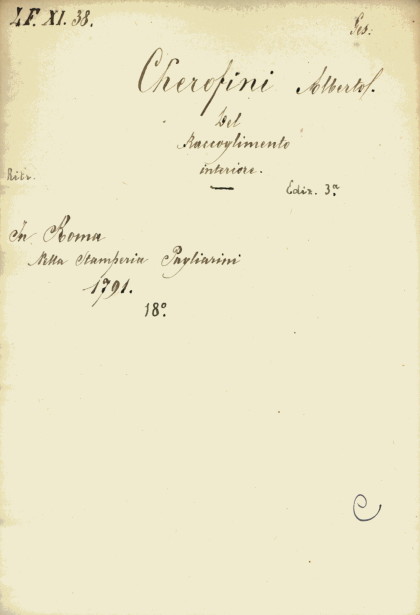 LF. XI. 38.
Ges:
Cherofini Alberto S.
Del
Raccoglimento
interiore.
Ritr.
Ediz. 3ª
In Roma
Nella Stamperia Pagliarini
1791.
18º
C